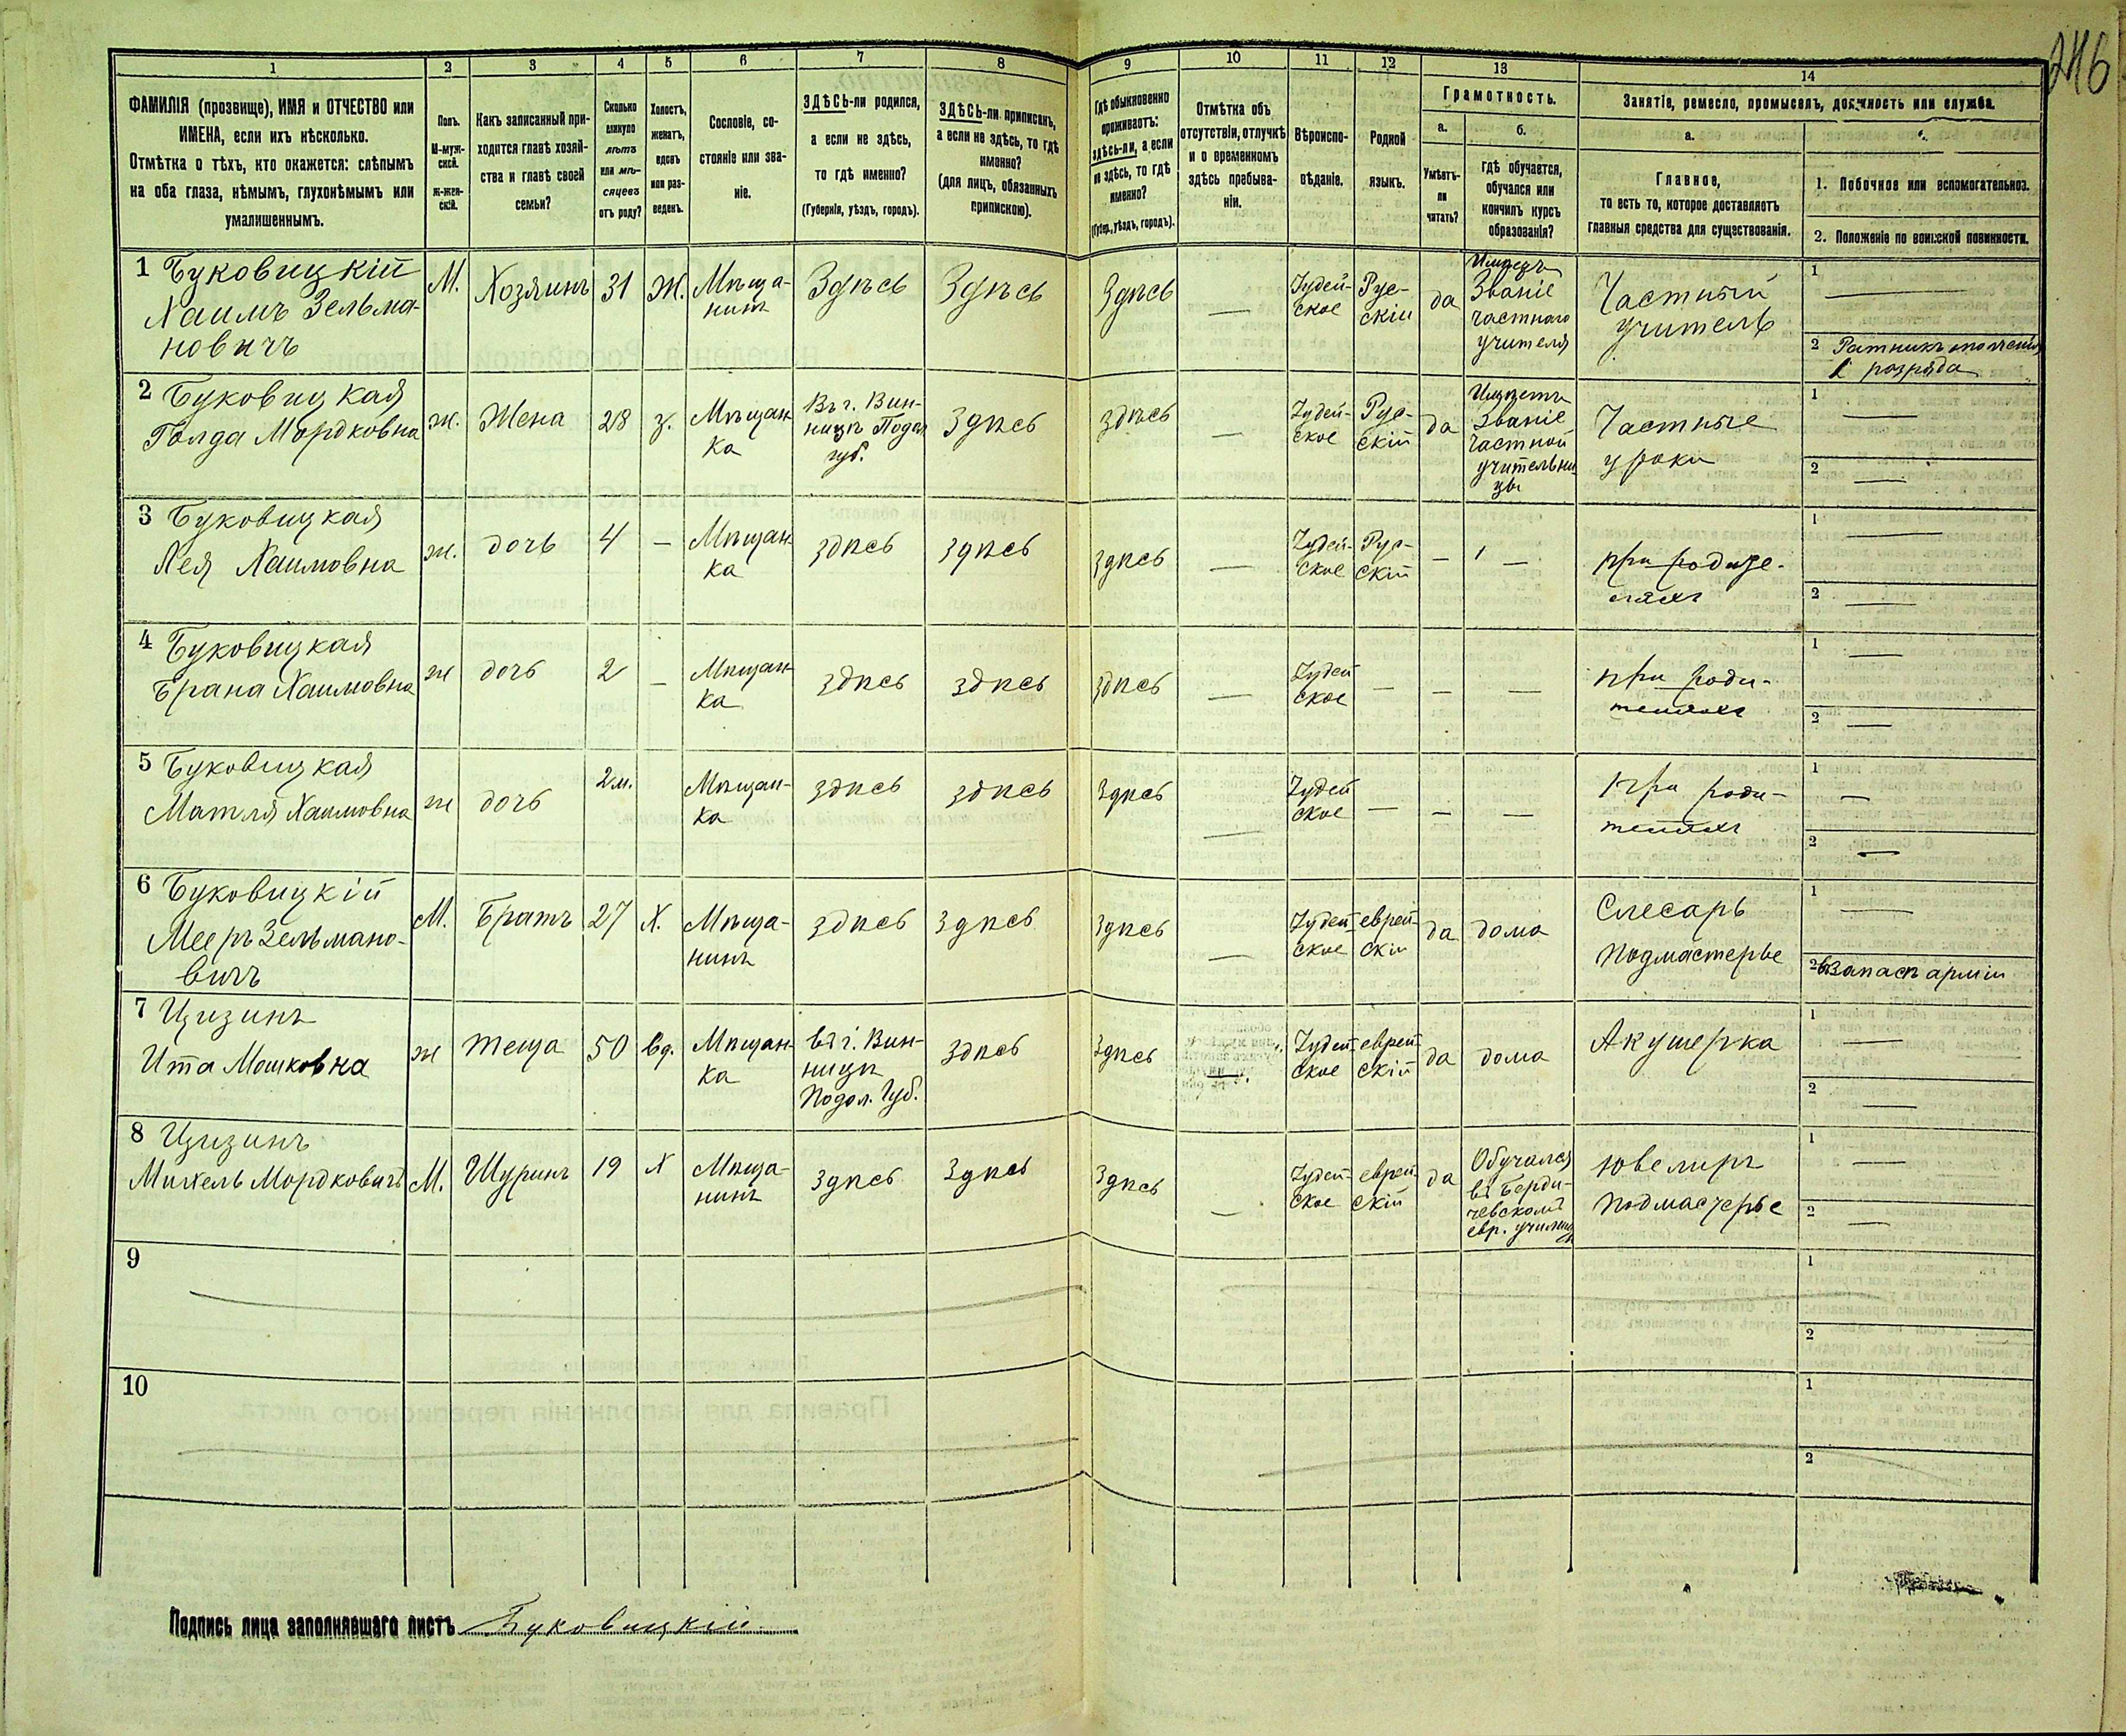 246
1 2 3 4 5 6 7 8 9 10 11 12 13 14
ФАМИЛІЯ (прозвище), ИМЯ и ОТЧЕСТВО или
ИМЕНА, если ихъ нѣсколько.
Отмѣтка о тѣхъ, кто окажется: слѣпымъ
на оба глаза, нѣмымъ, глухонѣмымъ или
умалишеннымъ.
Полъ.
М-муж-
ской.
Ж-жен-
скій.
Какъ записанный при-
ходится главѣ хозяй-
ства и главѣ своей
семьи?
Сколько
минуло
лѣтъ
или мѣ-
сяцевъ
отъ роду?
Холостъ,
женатъ,
вдовъ
или раз-
веденъ.
Сословіе, со-
стояніе или зва-
ніе.
ЗДѢСЬ-ли родился,
а если не здѣсь,
то гдѣ именно?
(Губернія, уѣздъ, городъ).
ЗДѢСЬ-ли приписанъ,
а если не здѣсь, то гдѣ
именно?
(для лицъ, обязанныхъ
припискою).
Гдѣ обыкновенно
проживаетъ:
здѣсь-ли, а если
не здѣсь, то гдѣ
именно?
(Губер., уѣздъ, городъ).
Отмѣтка объ
отсутствіи, отлучкѣ
и о временномъ
здѣсь пребыва-
ніи.
Вѣроиспо-
вѣданіе.
Родной
языкъ.
Грамотность.
а.
Умѣетъ-
ли
читать?
б.
гдѣ обучается,
обучался или
кончилъ курсъ
образованія?
Занятіе, ремесло, промыселъ, должность или служба.
а.
Главное,
то есть то, которое доставляетъ
главныя средства для существованія.
1. Побочное или вспомогательное.
2. Положеніе по воинской повинности.
1 Буковицкій
Хаимъ Зельма-
новичъ
М.
Хозяинъ
31
Ж.
Мѣща-
нинъ
Здѣсь
Здѣсь
Здѣсь
—
Іудей-
ское
Рус-
скій
да
Имѣетъ
Званіе
частнаго
учителя
Частный
учитель
1 —
2 Ратникъ ополченія
1 розряда
2 Буковицкая
Голда Мордковна
ж.
Жена
28
з.
Мѣщан
ка
Въ г. Вин-
ницѣ Подол
губ.
Здѣсь
здѣсь
—
Іудей-
ское
Рус-
скій
да
Имѣетъ
Званіе
частной
учительни
цы
Частные
уроки
1 —
2 —
3 Буковицкая
Лея Хаимовна
ж.
дочь
4
—
Мѣщан-
ка
здѣсь
здѣсь
здѣсь
—
Іудей-
ское
Рус-
скій
—
—
при родите-
ляхъ
1 —
2 —
4 Буковицкая
Брана Хаимовна
ж
дочь
2
—
Мѣщан-
ка
здѣсь
здѣсь
здѣсь
—
Іудей
ское
—
—
—
при роди-
теляхъ
1 —
2 —
5 Буковицкая
Матля Хаимовна
ж
дочь
2 м.
Мѣщан-
ка
здѣсь
здѣсь
здѣсь
—
Іудей
ское
—
—
—
При роди-
теляхъ
1 —
2 —
6 Буковицкій
Мееръ Зельмано-
вичъ
М.
Братъ
27
Х.
Мѣща-
нинъ
здѣсь
Здѣсь
здѣсь
—
Іудей-
ское
еврей-
скій
да
дома
Слесарь
Подмастерье
1 —
2 въ запасѣ арміи
7 Цизинъ
Ита Мошковна
ж
теща
50
вд.
Мѣщан-
ка
въ г. Вин-
ницѣ
Подол. Губ.
здѣсь
здѣсь
—
Іудей-
ское
еврей-
скій
да
дома
Акушерка
1 —
2 —
8 Цизинъ
Михель Мордковичъ
М.
Шуринъ
19
Х
Мѣща-
нинъ
здѣсь
Здѣсь
Здѣсь
—
Іудей-
ское
еврей-
скій
да
Обучался
въ Берди-
чевскомъ
евр. училищѣ
Ювелиръ
Подмастерье
1 —
2 —
9
1
2
10
1
2
Подпись лица заполнявшаго листъ Буковицкій